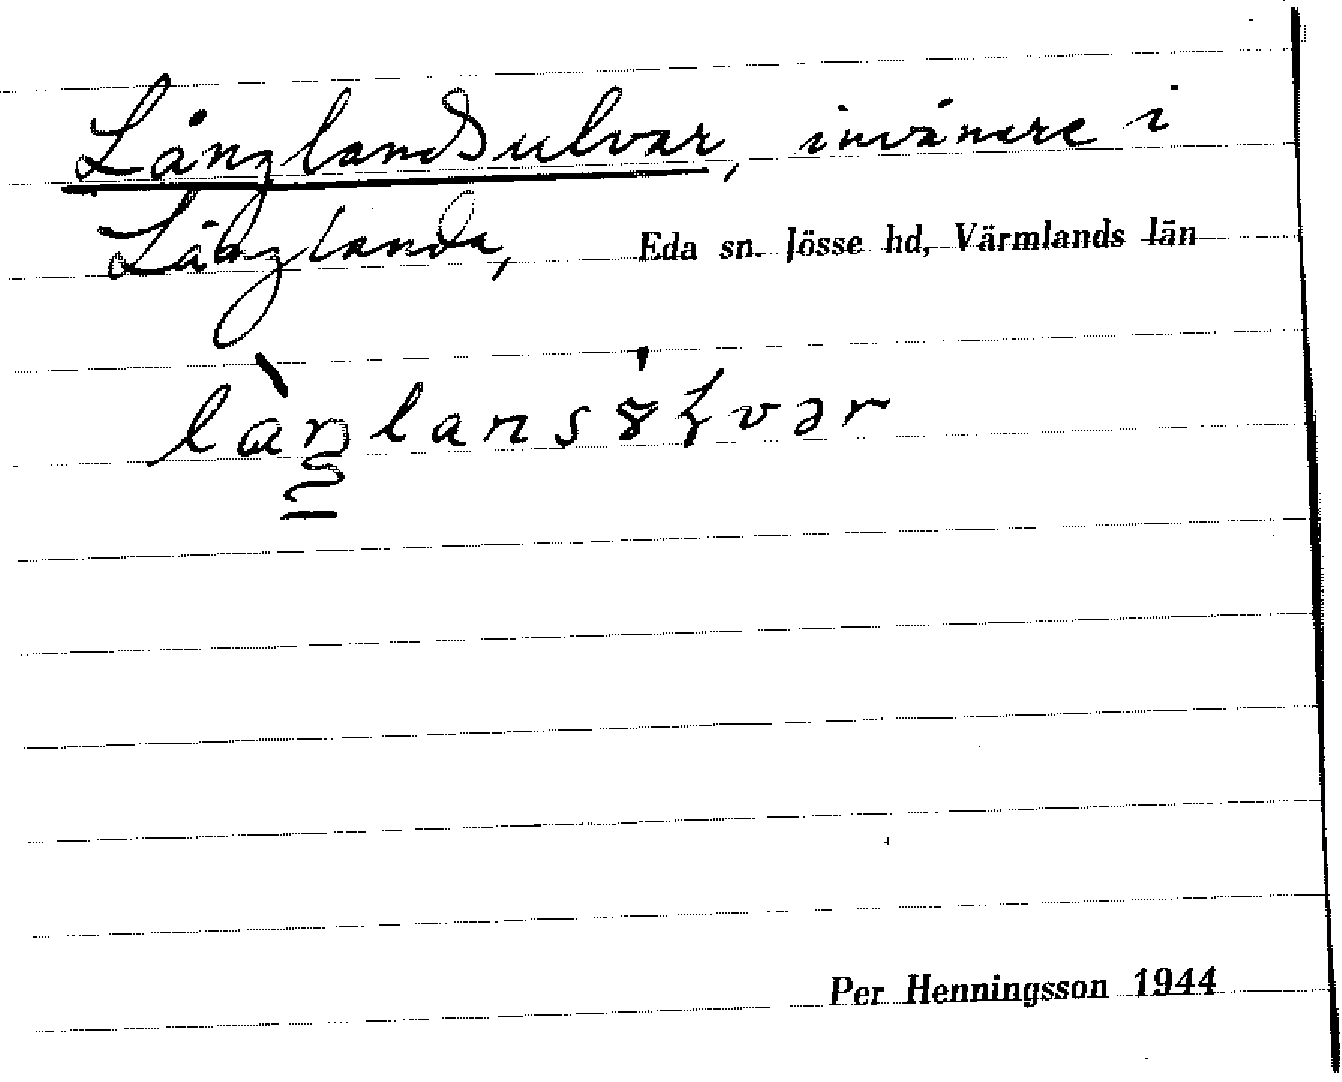 Långlandsulvar, invånare i
Långlanda, Eda sn. Jösse hd, Värmlands län
Per Henningsson 1944